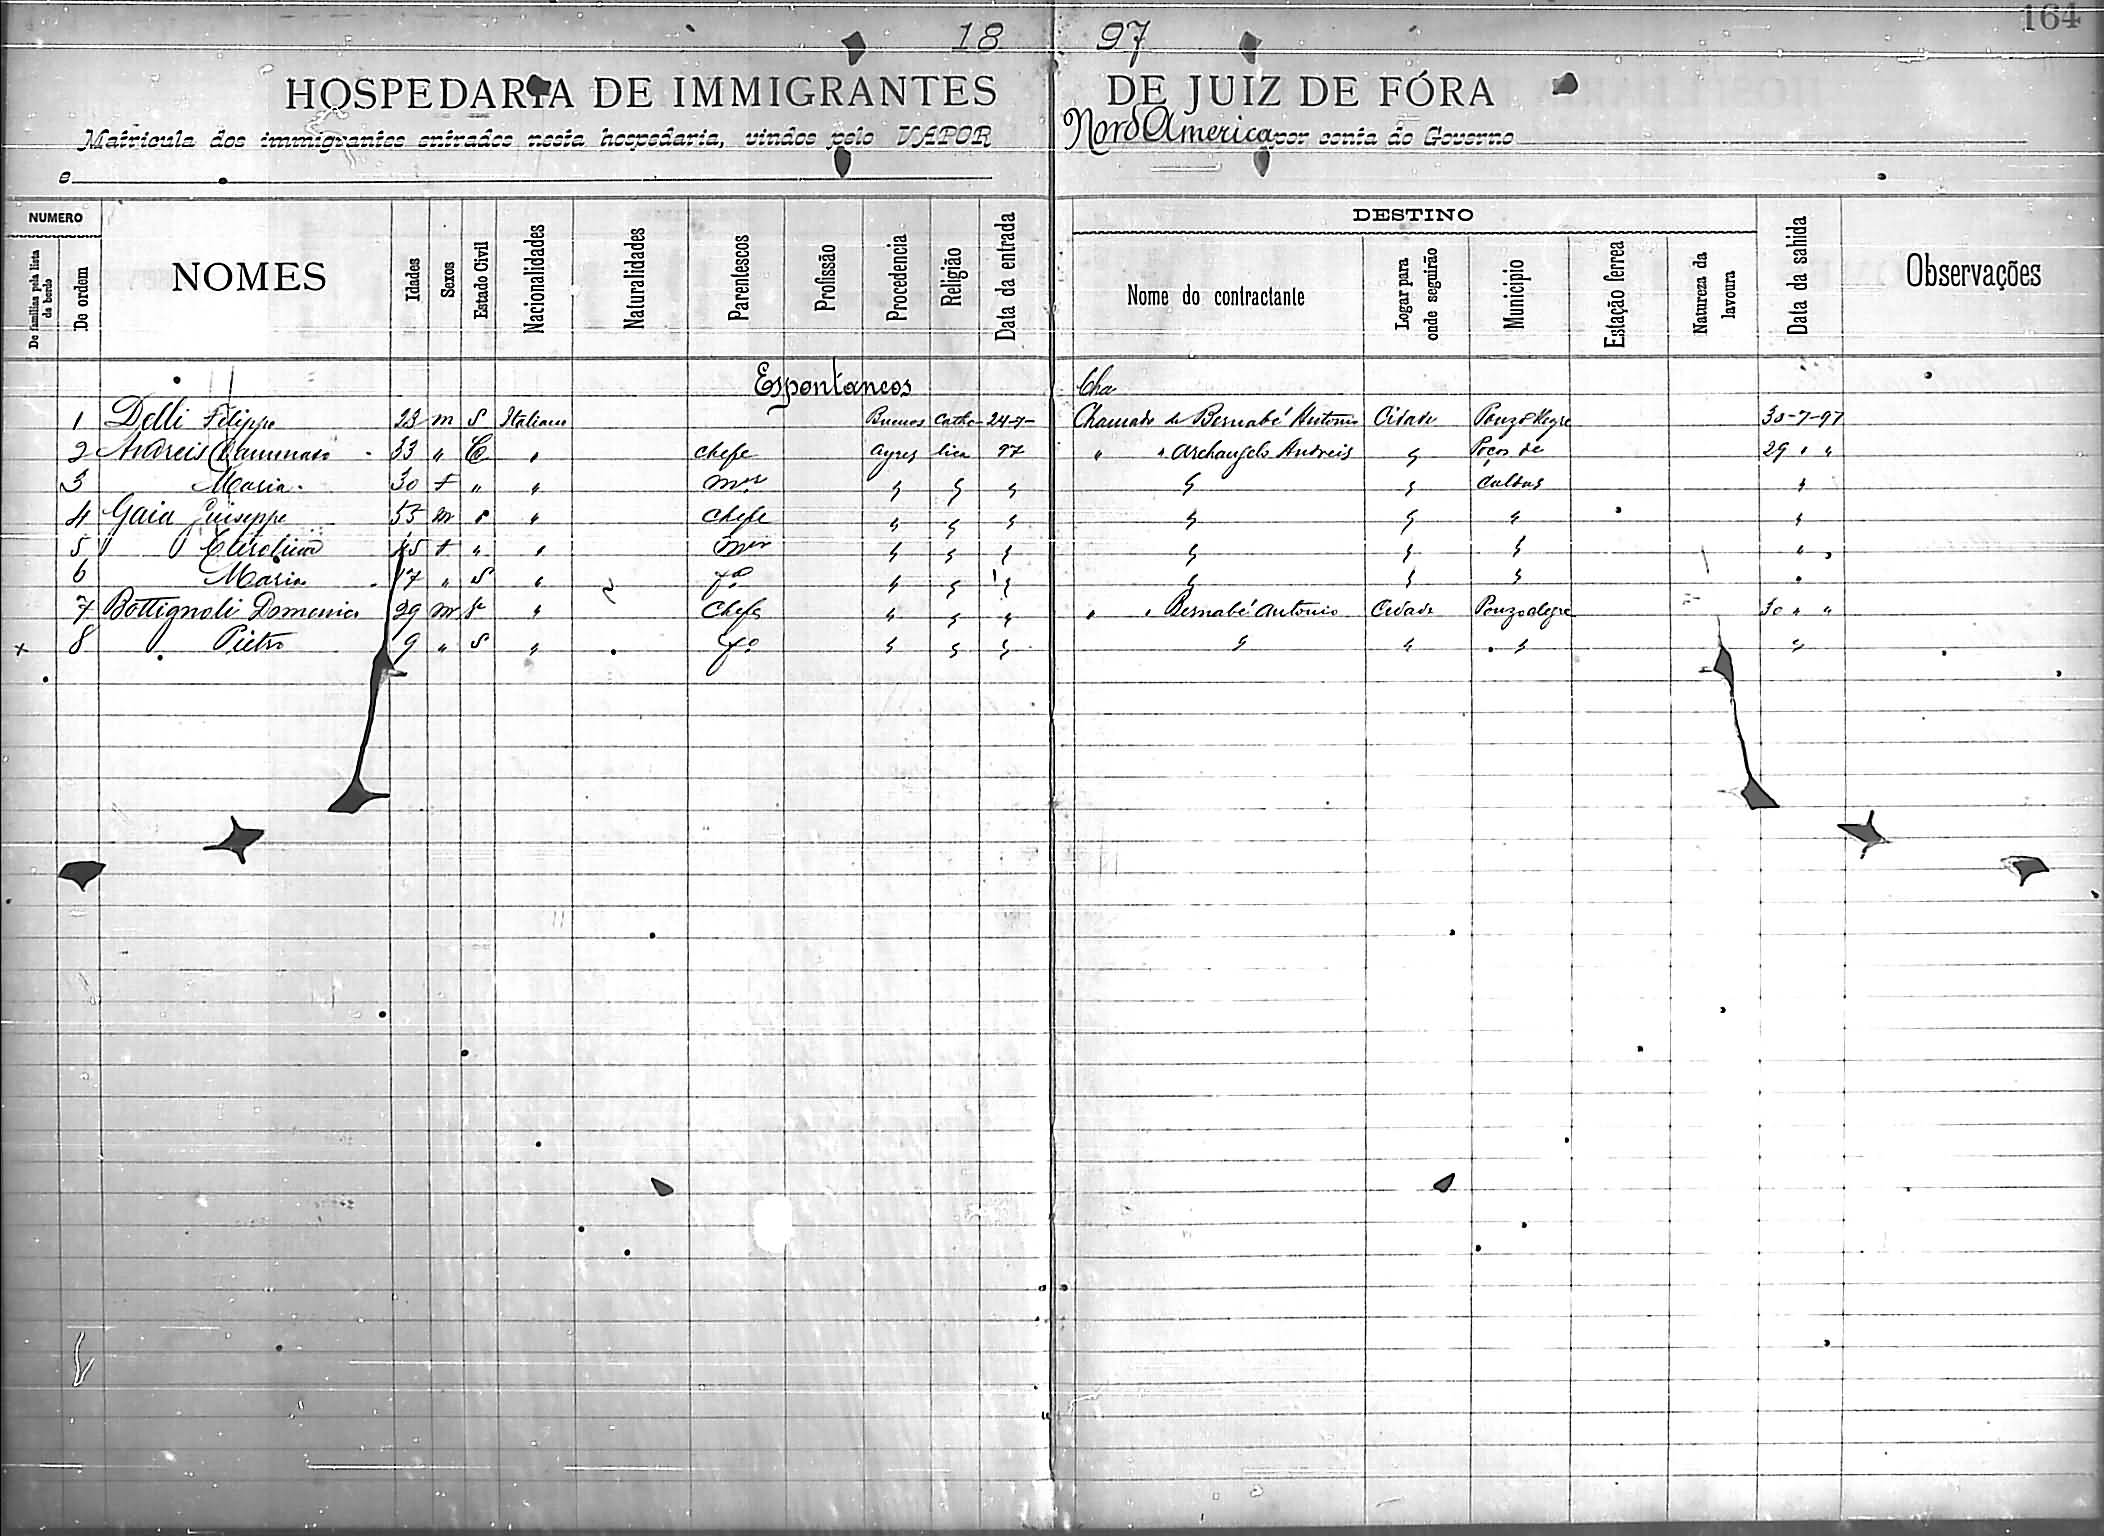 164
18 97
HOSPEDARIA DE IMMIGRANTES DE JUIZ DE FÓRA
Matricula dos immigrantes entrados nesta hospedaria, vindos pelo VAPOR Nord America por conta do Governo
e
NUMERO
DESTINO
De familias pela lista de bordo
De ordem
NOMES
Idades
Sexos
Estado Civil
Nacionalidades
Naturalidades
Parentescos
Profissão
Procedencia
Religião
Data da entrada
Nome do contractante
Logar para onde seguirão
Municipio
Estação ferrea
Natureza da lavoura
Data da sahida
Observações
Espontaneos Cha
1 Delli Filippo 23 m S Italiano Buenos Catho- 24-7- Chamado de Bernabé Antonio Cidade Pouzo Alegre 30-7-97
2 Andreis 33 " C " chefe Ayres lica 97 " " Archangelo Andreis " Poços de 29 " "
3 Maria 30 f " " mer " " " " " Caldas "
4 Gaia Guiseppe 55 m " " chefe " " " " " " "
5 45 f " " mer " " " " " " "
6 Maria 17 " S " fa " " " " " " "
7 Bottignoli Domenico 29 m " chefe " " " " " Bernabé Antonio Cidade Pouzo alegre 30 " "
x 8 Pietro 9 " S " fo " " " " " " "